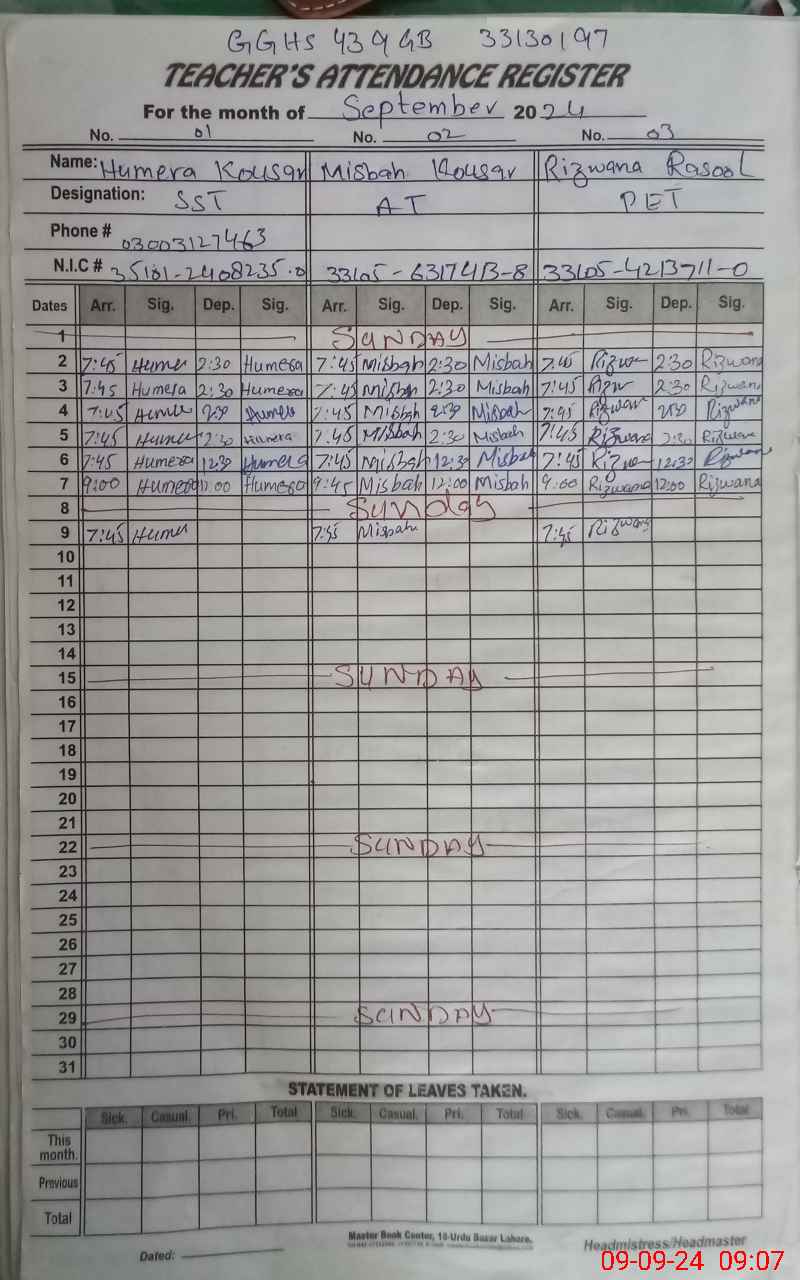 GGHS 439 GB 33130197
TEACHER'S ATTENDANCE REGISTER
For the month of September 2024
No. 01 No. 02 No. 03
Name: Humera Kousar Misbah Kousar Rizwana Rasool
Designation: SST AT PET
Phone # 03003127463
N.I.C # 35101-2408235-0 33105-6317413-8 33105-4213711-0
Dates Arr. Sig. Dep. Sig. Arr. Sig. Dep. Sig. Arr. Sig. Dep. Sig.
1 SUNDAY
2 7:45 Humera 2:30 Humera 7:45 Misbah 2:30 Misbah 7:45 Rizwan 2:30 Rizwana
3 7:45 Humera 2:30 Humera 7:45 Misbah 2:30 Misbah 7:45 2:30 Rizwana
4 7:45 Humera 2:30 Humera 7:45 Misbah 2:30 Misbah 7:45 Rizwana 2:30 Rizwana
5 7:45 Humera 2:30 Humera 7:45 Misbah 2:30 Misbah 7:45 Rizwana 2:30 Rizwana
6 7:45 Humera 12:30 Humera 7:45 Misbah 12:30 Misbah 7:45 12:30 Rizwana
7 9:00 Humera 12:00 Humera 9:45 Misbah 12:00 Misbah 9:00 Rizwana 12:00 Rizwana
8 Sunday
9 7:45 Humera 7:45 Misbah 7:45 Rizwana
10
11
12
13
14
15 SUNDAY
16
17
18
19
20
21
22 SUNDAY
23
24
25
26
27
28
29 SUNDAY
30
31
STATEMENT OF LEAVES TAKEN.
Sick. Casual. Pri. Total Sick. Casual. Pri. Total Sick. Casual. Pri. Total
This month.
Previous
Total
Master Book Center, 10-Urdu Bazar Lahore.
Dated: Headmistress/Headmaster
09-09-24 09:07